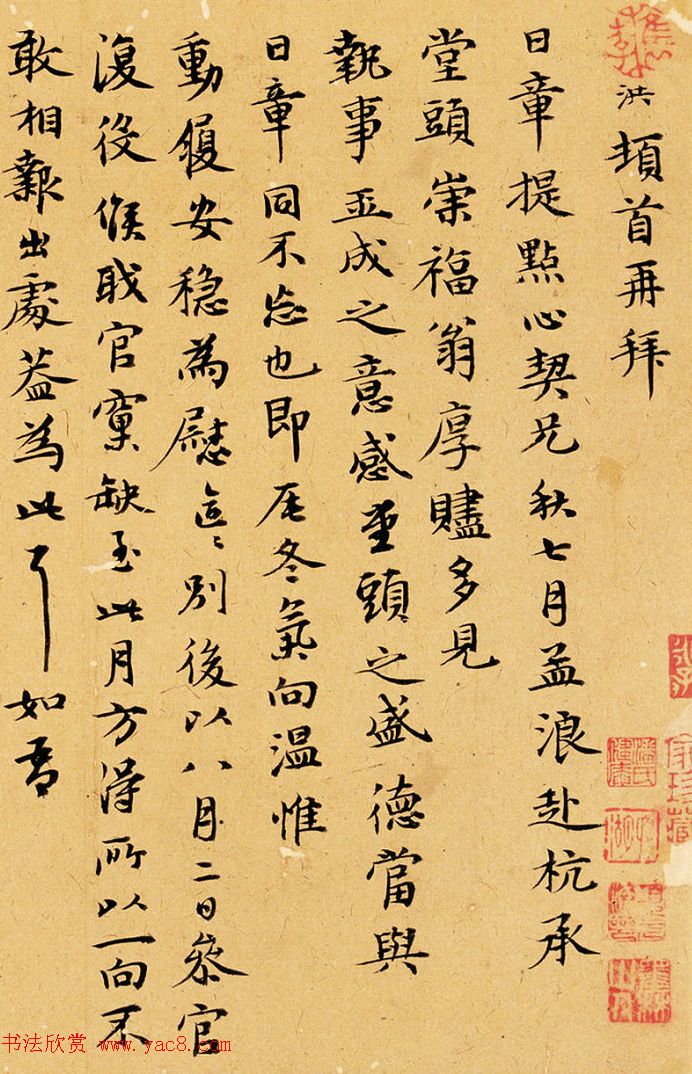 洪頓首再拜
日章提點心契兄秋七月孟浪赴杭承
堂頭崇福翁厚贐多見
執事玉成之意感堂頭之盛德當與
日章同不忘也即辰冬氣向温惟
動履安穩為慰區〻別後以八月二日叅官
復役候職官窠缺至此月方得所以一向不
敢相報出處葢為此耳如吾
书法欣赏 www.yac8.com